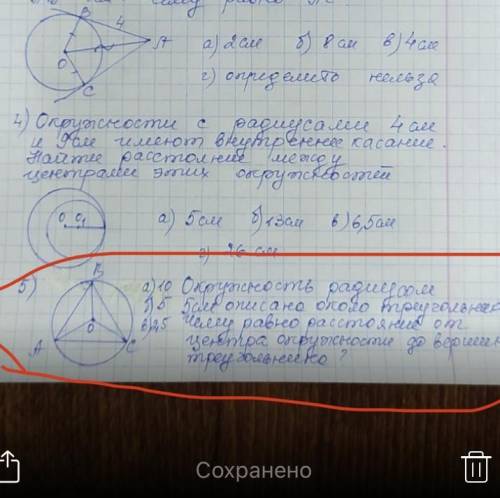 B
4
A
O
C
а) 2 см б) 8 см в) 4 см
г) определить нельзя
4) Окружности с радиусами 4 см
и 9 см имеют внутреннее касание.
Найти расстояние между
центрами этих окружностей
O O₁
а) 5 см б) 13 см в) 6,5 см
г) 26 см
5)
B
O
A
C
а) 10
б) 5
в) 25
Окружность радиусом
5 см описана около треугольник
Чему равно расстояние от
центра окружности до вершин
треугольника?
Сохранено